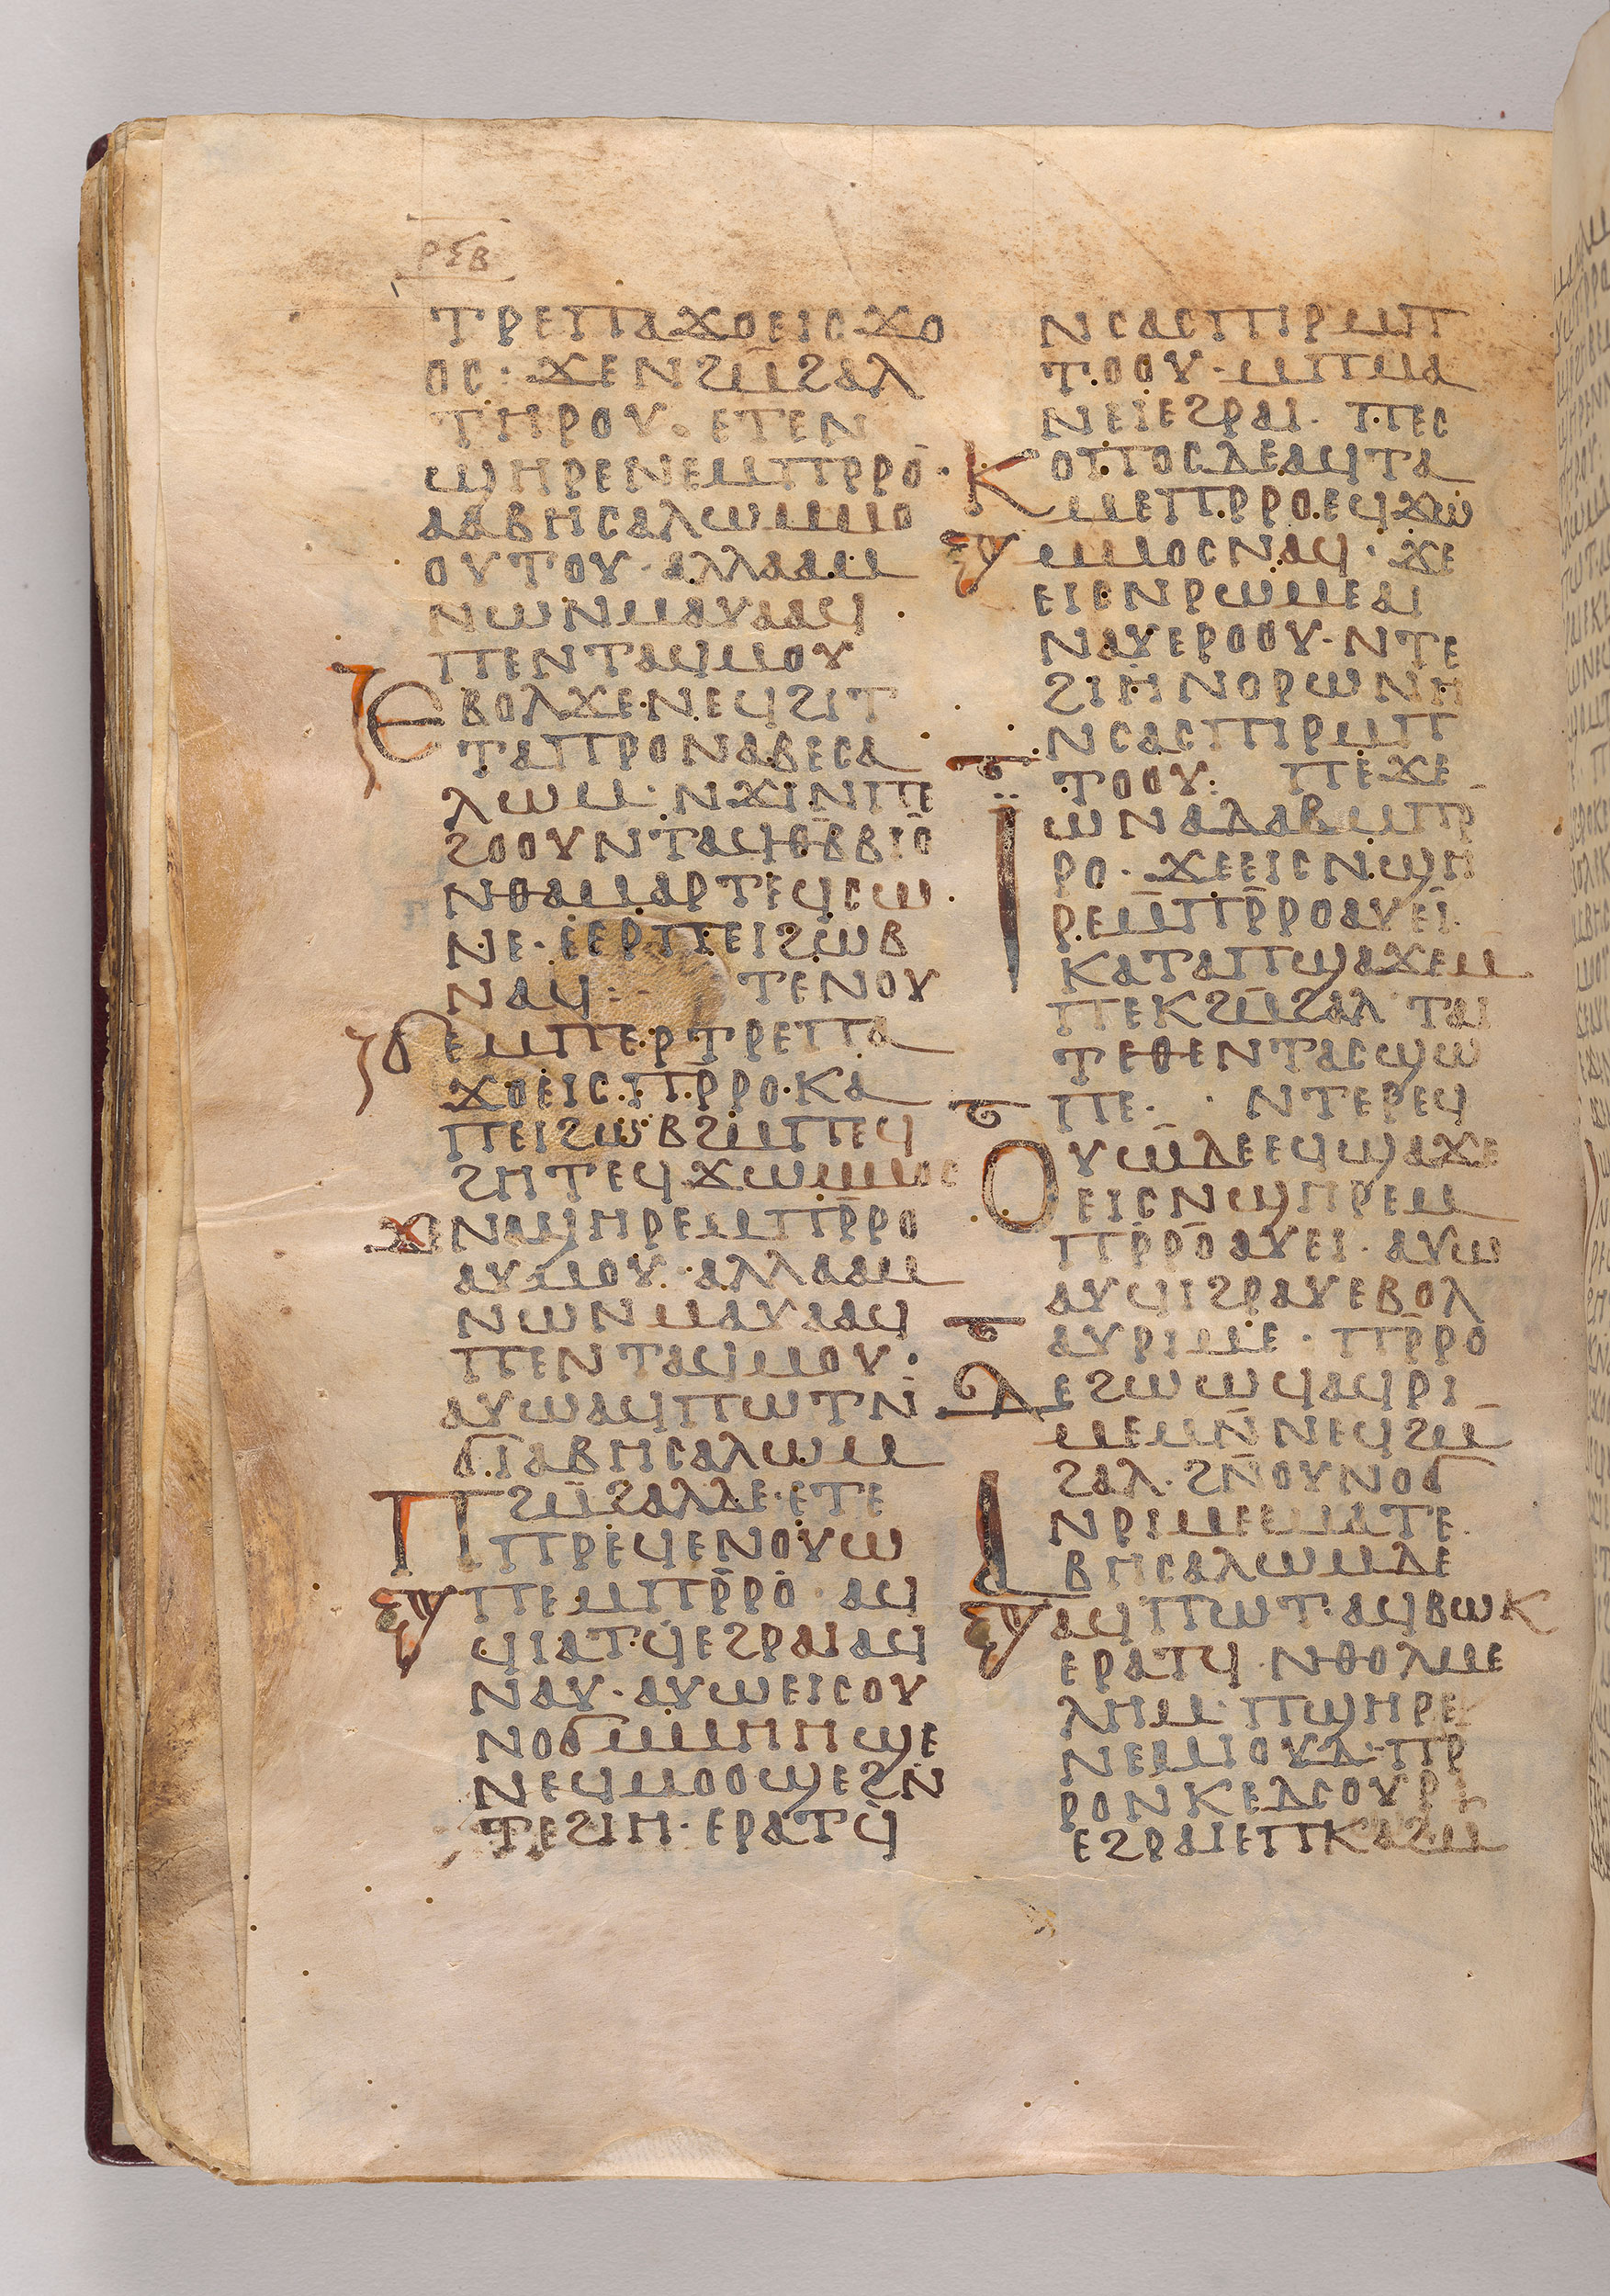 ⲣⲝⲃ
ⲧⲣⲉⲡⲁϫⲟⲉⲓⲥϫⲟ
ⲟⲥ· ϫⲉⲛϩⲙ̅ϩⲁⲗ
ⲧⲏⲣⲟⲩ· ⲉⲧⲉⲛ
ϣⲏⲣⲉⲛⲉⲙⲡⲣⲣⲟ·
ⲁⲁⲃⲏⲥⲁⲗⲱⲙⲙⲟ
ⲟⲩⲧⲟⲩ· ⲁⲗⲗⲁⲁⲙ
ⲛⲱⲛⲙⲁⲩⲁⲁϥ·
ⲡⲉⲛⲧⲁϥⲙⲟⲩ
ⲉⲃⲟⲗϫⲉ·ⲛⲉϥϩⲓⲧ
ⲧⲁⲡⲣⲟⲛⲁⲃⲉⲥⲁ
ⲗⲱⲙ· ⲛϫⲓⲛⲡⲉ
ϩⲟⲟⲩⲛⲧⲁϥⲑⲃ̅ⲃⲓⲟ
ⲛⲑⲁⲙⲁⲣⲧⲉϥⲥⲱ·
ⲛⲉ· ⲉⲉⲣⲡⲉⲓϩⲱⲃ
ⲛⲁϥ:- ⲧⲉⲛⲟⲩ
ϭⲉⲙⲡⲉⲣⲧⲣⲉⲡⲁ
ϫⲟⲉⲓⲥ·ⲡ̅ⲣⲣⲟ·ⲕⲁ
ⲡⲉⲓϩⲱⲃϩⲙⲡⲉϥ
ϩⲏⲧⲉϥϫⲱⲙⲙⲟⲥ
ϫⲛⲁϣⲏⲣⲉⲙⲡⲣ̅ⲣⲟ
ⲁⲩⲙⲟⲩ· ⲁⲗⲗⲁⲁⲙ
ⲛⲱⲛⲙⲁⲩⲁⲁϥ
ⲡⲉⲛⲧⲁϥⲙⲟⲩ·
ⲁⲩⲱⲁϥⲡⲱⲧⲛ
ϭⲓⲁⲃⲏⲥⲁⲗⲱⲙ
ⲡϩⲙ̅ϩⲁⲗⲇⲉ·ⲉⲧⲉ
ⲡⲣⲉϥⲉⲛⲟⲩⲱ
ⲡⲉⲙⲡⲣ̅ⲣⲟ· ⲁϥ
ϥⲓⲁⲧϥⲉϩⲣⲁⲓⲁϥ
ⲛⲁⲩ· ⲁⲩⲱⲉⲓⲥⲟⲩ
ⲛⲟϭⲙⲙⲏⲏϣⲉ
ⲛⲉϥⲙⲟⲟϣⲉϩⲛ
ⲧⲉϩⲓⲏ· ⲉⲣⲁⲧϥ
ⲛⲥⲁⲥⲡⲓⲣⲙⲡ
ⲧⲟⲟⲩ· ⲙⲡⲙⲁ
ⲛⲉⲓⲉϩⲣⲁⲓ· ⲡⲉⲥ
ⲕⲟⲡⲟⲥⲇⲉⲁϥⲧⲁ
ⲙⲉⲡⲣⲣⲟ·ⲉϥϫⲱ
ⲙⲙⲟⲥⲛⲁϥ· ϫⲉ
ⲉⲓⲉⲛⲣⲱⲙⲉⲁⲓ
ⲛⲁⲩⲉⲣⲟⲟⲩ· ⲛⲧⲉ
ϩⲓⲏⲛⲟⲣⲱⲛⲏ
ⲛⲥⲁⲥⲡⲓⲣⲙⲡ
ⲧⲟⲟⲩ: ⲡⲉϫⲉ
ⲓ̈ⲱⲛⲁⲇⲁⲃⲙⲡⲣ̅
ⲣⲟ· ϫⲉⲉⲓⲥⲛϣⲏ
ⲣⲉⲙ̅ⲡⲣ̅ⲣⲟⲁⲩⲉⲓ·
ⲕⲁⲧⲁⲡϣⲁϫⲉⲙ
ⲡⲉⲕϩⲙ̅ϩⲁⲗ ⲧⲁⲓ
ⲧⲉⲑⲉⲛⲧⲁⲥϣⲱ
ⲡⲉ· · ⲛⲧⲉⲣⲉϥ
ⲟⲩⲱⲇⲉⲉϥϣⲁϫⲉ
ⲉⲓⲥⲛϣⲏⲣⲉⲙ
ⲡⲣ̅ⲣⲟⲁⲩⲉⲓ· ⲁⲩⲱ
ⲁⲩϥⲓϩⲣⲁⲩⲉⲃⲟⲗ
ⲁⲩⲣⲓⲙⲉ· ⲡⲣ̅ⲣⲟ
ⲇⲉϩⲱⲱϥⲁϥⲣⲓ
ⲙⲉⲙⲛ̅ⲛⲉϥϩⲙ̅
ϩⲁⲗ· ϩⲛ̅ⲟⲩⲛⲟϭ
ⲛⲣⲓⲙⲉⲉⲙⲁⲧⲉ·
ⲁⲃⲏⲥⲁⲗⲱⲙⲇⲉ
ⲁϥⲡⲱⲧ·ⲁϥⲃⲱⲕ
ⲉⲣⲁⲧϥ ⲛⲑⲟⲗⲙⲉ
ⲗⲏⲙ· ⲡϣⲏⲣⲉ
ⲛⲉⲙⲓⲟⲩⲇ· ⲡⲣ
ⲣⲟⲛⲕⲉⲇⲥⲟⲩⲣ
ⲉϩⲣⲁⲓⲉⲡⲕⲁϩⲙ